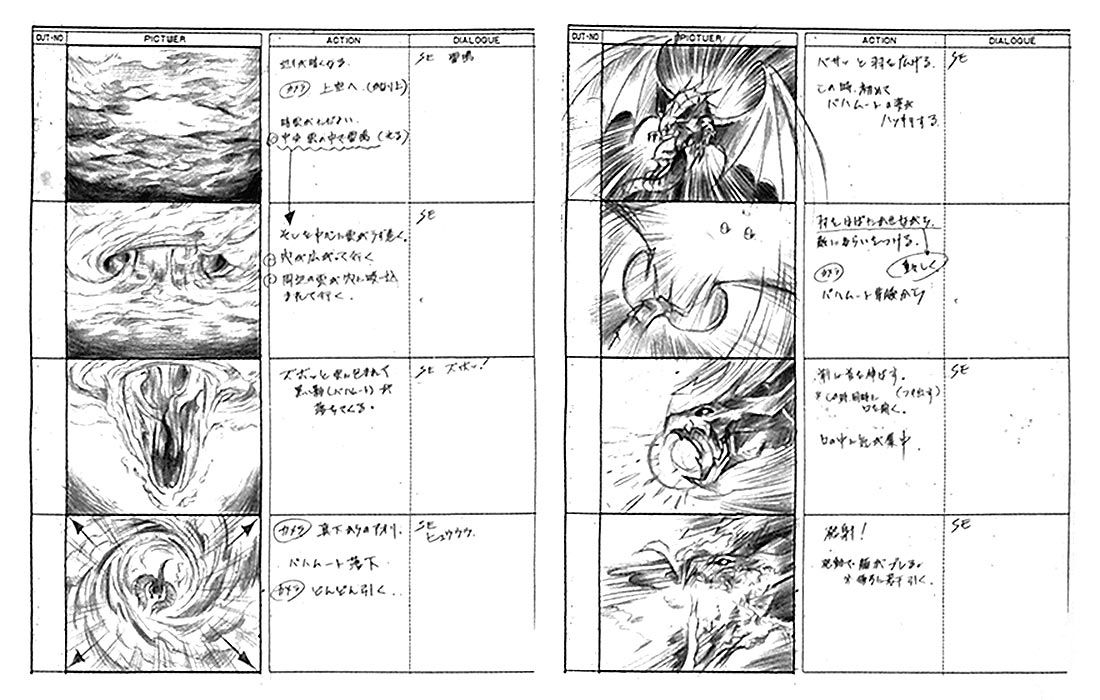 CUT-NO PICTUER ACTION DIALOGUE
辺りが暗くなる。
カメラ 上空へ(かなり上)
SE 雷鳴
中央 雲の中で雷鳴(光る)
SE
穴が広がって行く
周辺の雲が穴に吸い込
まれて行く。
ズボッと雲に包まれて
黒い影(バハムート)が
落ちてくる。
SE ズボッ!
カメラ 真下からのアオリ。
バハムート落下
カメラ どんどん引く...
SE
ヒュウウウ.
CUT-NO PICTUER ACTION DIALOGUE
バサッと羽を広げる。
この時、初めて
バハムートの姿が
ハッキリする。
SE
羽をはばたかせながら
敵にねらいをつける。
激しく
カメラ
バハムート背後から
SE
前に首を伸ばす。
(つき出す)
※この時、同時に
口を開く。
口の中に光が集中
SE
発射!
反動で顔がブレる。
SE